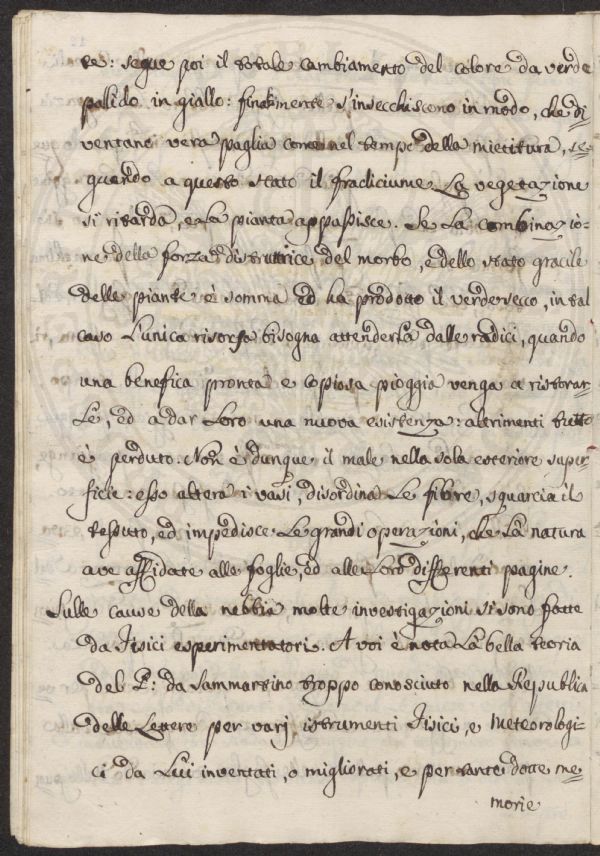 te: segue poi il totale cambiamento del colore da verde
palido in giallo: finalmente s'insecchiscono in modo, che di=
ventano vera paglia come nel tempo della mietitura, se=
guendo a questo stato il fradiciume. La vegetazione
si ritarda, e la pianta appassisce. Se la combinazio=
ne della forza distruttrice del morbo, e dello stato gracile
delle piante è somma ed ha prodotto il verdesecco, in tal
caso l'unica risorsa bisogna attenderla dalle radici, quando
una benefica pronta e copiosa pioggia venga a ristorar=
le, ed a dar loro una nuova esistenza: altrimenti tutto
è perduto. Non è dunque il male nella sola esteriore super=
ficie: esso altera i vasi, disordina le fibre, squarcia il
tessuto, ed impedisce le grandi operazioni, che la natura
ave affidate alle foglie, ed alle loro differenti pagine.
Sulle cause della nebbia molte investigazioni si sono fatte
da Fisici esperimentatori. A voi è nota la bella teoria
del P: da Sammartino troppo conosciuto nella Republica
delle Lettere per varj istrumenti Fisici, e Meteorologi=
ci da Lui inventati, o migliorati, e per tante dotte me=
morie